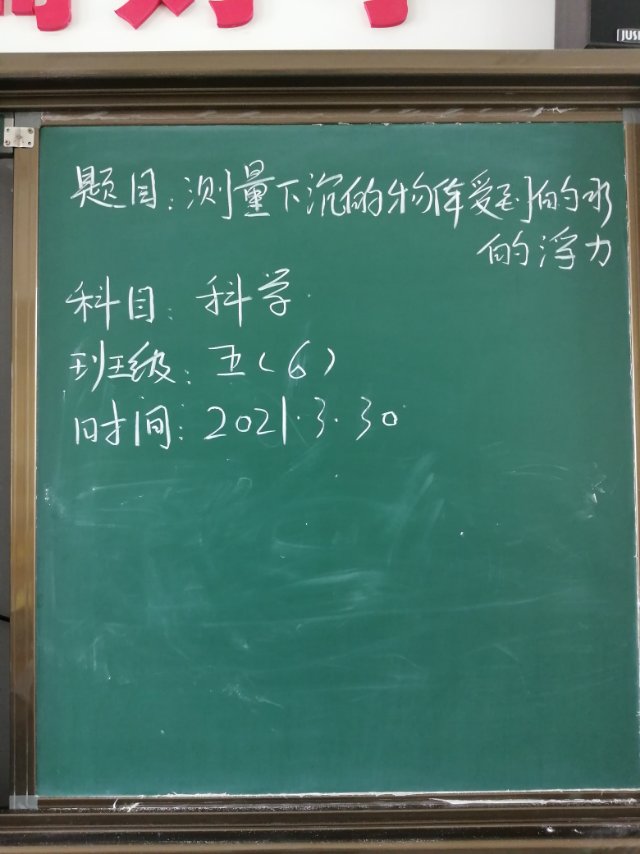 题目:测量下沉的物体受到的水
的浮力
科目:科学
班级:五(6)
时间:2021.3.30